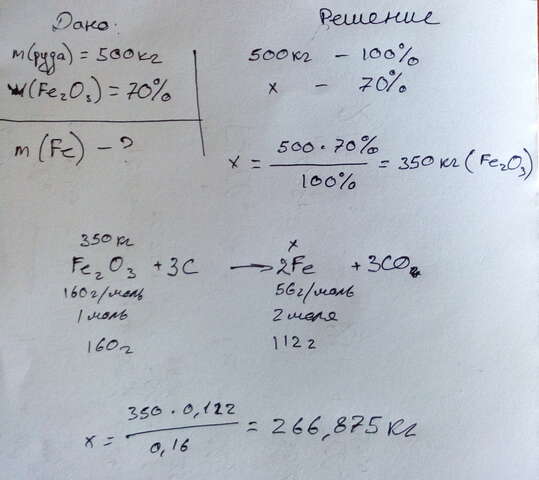 Дано:
m(руда) = 500кг
w(Fe₂O₃) = 70%
m(Fe) – ?
Решение
500кг – 100%
x – 70%
x = 500 · 70% / 100% = 350 кг (Fe₂O₃)
350 кг x
Fe₂O₃ + 3C → 2Fe + 3CO
160г/моль 56г/моль
1 моль 2 моля
160г 112г
x = 350 · 0,122 / 0,16 = 266,875 кг